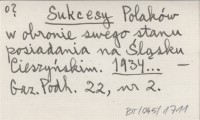 o?
Sukcesy Polaków
w obronie swego stanu
posiadania na Śląsku
Cieszyńskim. 1934... –
Gaz. Podh. 22, nr 2.
BT/045/1711